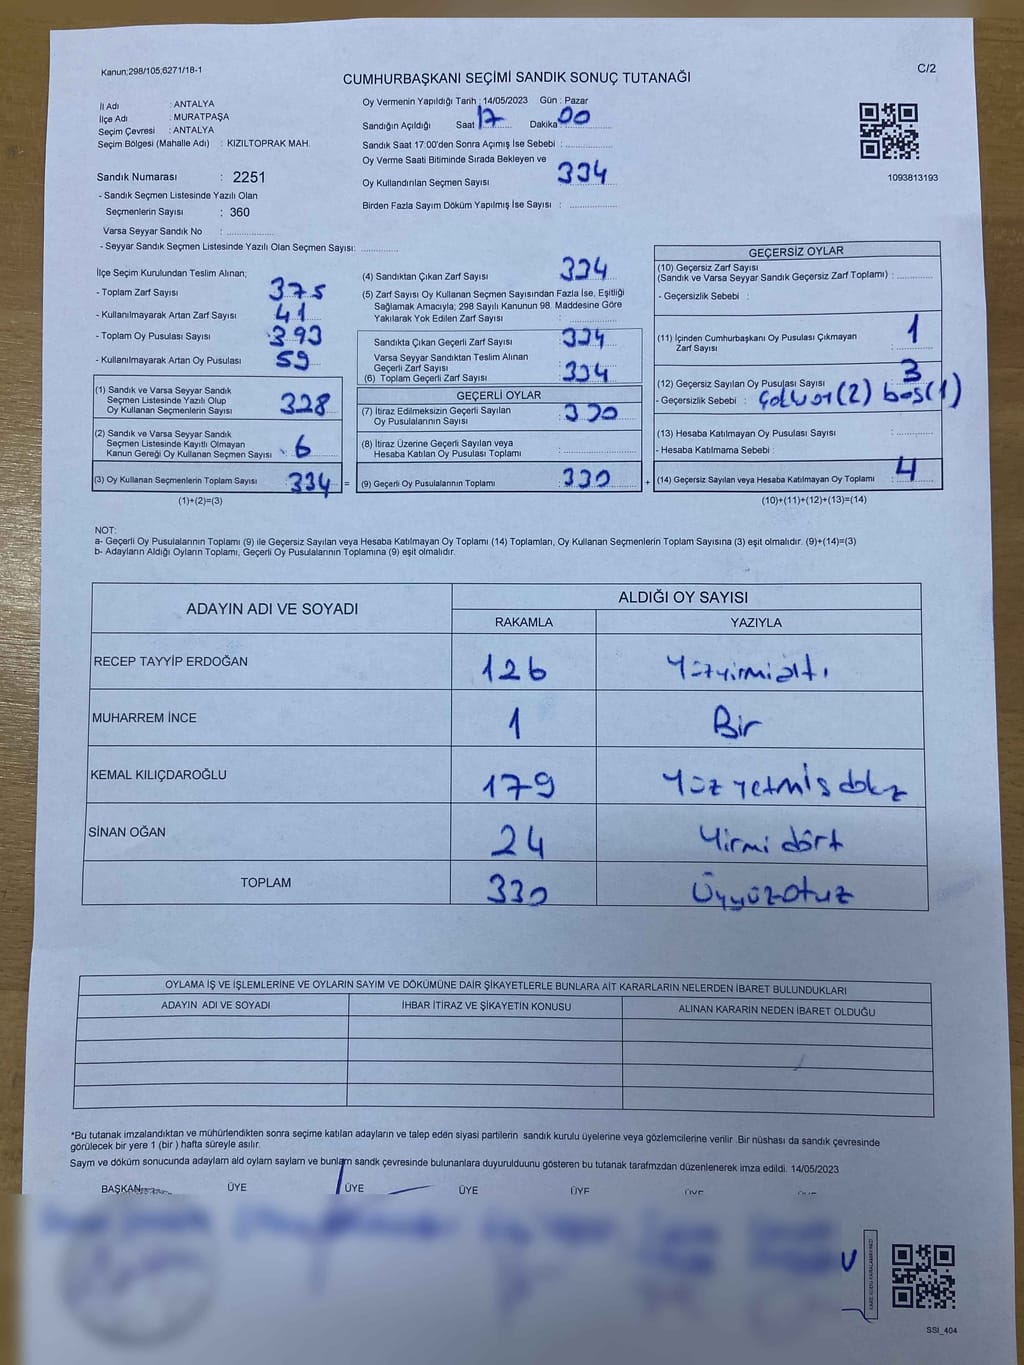 Kanun;298/105;6271/18-1
C/2
CUMHURBAŞKANI SEÇİMİ SANDIK SONUÇ TUTANAĞI
İl Adı : ANTALYA
İlçe Adı : MURATPAŞA
Seçim Çevresi : ANTALYA
Seçim Bölgesi (Mahalle Adı) : KIZILTOPRAK MAH.
Sandık Numarası : 2251
- Sandık Seçmen Listesinde Yazılı Olan
Seçmenlerin Sayısı : 360
Varsa Seyyar Sandık No :
- Seyyar Sandık Seçmen Listesinde Yazılı Olan Seçmen Sayısı:
Oy Vermenin Yapıldığı Tarih : 14/05/2023 Gün : Pazar
Sandığın Açıldığı Saat 17 Dakika 00
Sandık Saat 17:00'den Sonra Açımış İse Sebebi :
Oy Verme Saati Bitiminde Sırada Bekleyen ve
Oy Kullandırılan Seçmen Sayısı 334
Birden Fazla Sayım Döküm Yapılmış İse Sayısı :
1093813193
İlçe Seçim Kurulundan Teslim Alınan;
- Toplam Zarf Sayısı 375
- Kullanılmayarak Artan Zarf Sayısı 41
- Toplam Oy Pusulası Sayısı 393
- Kullanılmayarak Artan Oy Pusulası 59
(1) Sandık ve Varsa Seyyar Sandık
Seçmen Listesinde Yazılı Olup
Oy Kullanan Seçmenlerin Sayısı 328
(2) Sandık ve Varsa Seyyar Sandık
Seçmen Listesinde Kayıtlı Olmayan
Kanun Gereği Oy Kullanan Seçmen Sayısı 6
(3) Oy Kullanan Seçmenlerin Toplam Sayısı 334 =
(1)+(2)=(3)
(4) Sandıktan Çıkan Zarf Sayısı 334
(5) Zarf Sayısı Oy Kullanan Seçmen Sayısından Fazla İse, Eşitliği
Sağlamak Amacıyla; 298 Sayılı Kanunun 98. Maddesine Göre
Yakılarak Yok Edilen Zarf Sayısı :
Sandıkta Çıkan Geçerli Zarf Sayısı 334
Varsa Seyyar Sandıktan Teslim Alınan
Geçerli Zarf Sayısı
(6) Toplam Geçerli Zarf Sayısı 334
GEÇERLİ OYLAR
(7) İtiraz Edilmeksizin Geçerli Sayılan
Oy Pusulalarının Sayısı 330
(8) İtiraz Üzerine Geçerli Sayılan veya
Hesaba Katılan Oy Pusulası Toplamı
(9) Geçerli Oy Pusulalarının Toplamı : 330 +
GEÇERSİZ OYLAR
(10) Geçersiz Zarf Sayısı
(Sandık ve Varsa Seyyar Sandık Geçersiz Zarf Toplamı) :
- Geçersizlik Sebebi :
(11) İçinden Cumhurbaşkanı Oy Pusulası Çıkmayan
Zarf Sayısı : 1
(12) Geçersiz Sayılan Oy Pusulası Sayısı 3
- Geçersizlik Sebebi : boş(1)
(13) Hesaba Katılmayan Oy Pusulası Sayısı :
- Hesaba Katılmama Sebebi :
(14) Geçersiz Sayılan veya Hesaba Katılmayan Oy Toplamı 4
(10)+(11)+(12)+(13)=(14)
NOT:
a- Geçerli Oy Pusulalarının Toplamı (9) ile Geçersiz Sayılan veya Hesaba Katılmayan Oy Toplamı (14) Toplamları, Oy Kullanan Seçmenlerin Toplam Sayısına (3) eşit olmalıdır. (9)+(14)=(3)
b- Adayların Aldığı Oyların Toplamı, Geçerli Oy Pusulalarının Toplamına (9) eşit olmalıdır.
ADAYIN ADI VE SOYADI
ALDIĞI OY SAYISI
RAKAMLA YAZIYLA
RECEP TAYYİP ERDOĞAN 126 Yüzyirmialtı
MUHARREM İNCE 1 Bir
KEMAL KILIÇDAROĞLU 179 Yüz yetmiş dokz
SİNAN OĞAN 24 Yirmi dört
TOPLAM 330 Üçyüzotuz
OYLAMA İŞ VE İŞLEMLERİNE VE OYLARIN SAYIM VE DÖKÜMÜNE DAİR ŞİKAYETLERLE BUNLARA AİT KARARLARIN NELERDEN İBARET BULUNDUKLARI
ADAYIN ADI VE SOYADI İHBAR İTİRAZ VE ŞİKAYETİN KONUSU ALINAN KARARIN NEDEN İBARET OLDUĞU
*Bu tutanak imzalandıktan ve mühürlendikten sonra seçime katılan adayların ve talep eden siyasi partilerin sandık kurulu üyelerine veya gözlemcilerine verilir .Bir nüshası da sandık çevresinde
görülecek bir yere 1 (bir ) hafta süreyle asılır.
Sayım ve döküm sonucunda adaylam ald oylam saylam ve bunlam sandk çevresinde bulunanlara duyurulduunu gösteren bu tutanak tarafmzdan düzenlenerek imza edildi. 14/05/2023
BAŞKAN ÜYE ÜYE ÜYE ÜYE
SSI_404